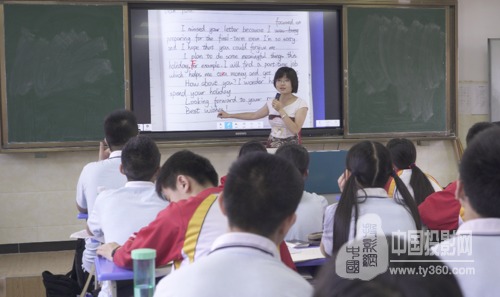 I missed your letter because I was busy
preparing for the final-term exam. I'm so sorry
and I hope that you could forgive me
I plan to do some meaningful things this
holiday, for example, I will find a part-time job
which helps me earn money and yet
How about you? I wonder how
spend your holiday
Looking forward to your
Best wishes!
中国投影网
www.ty360.com